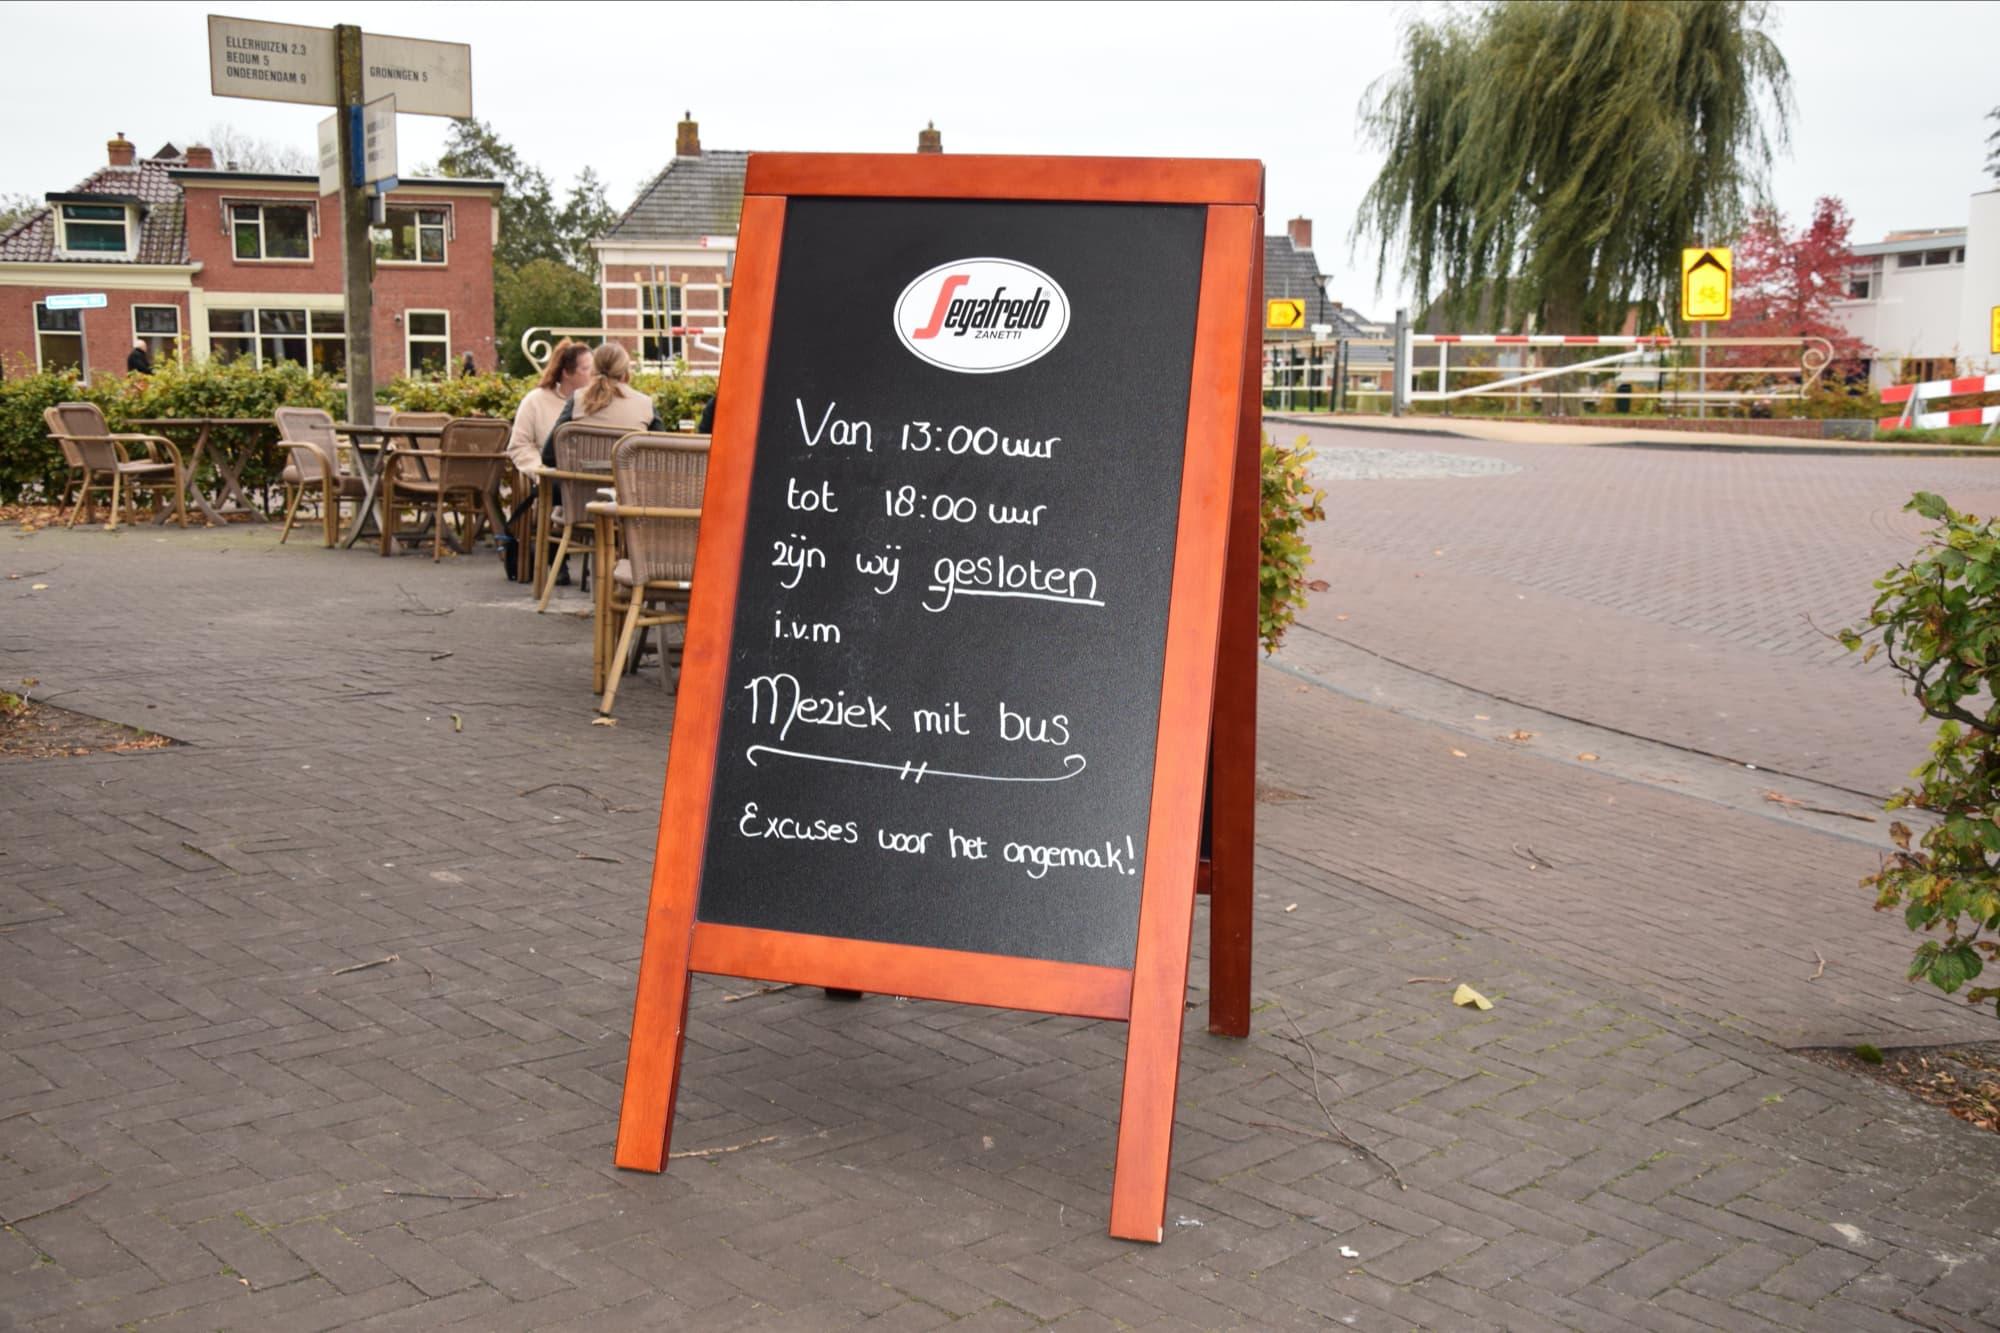 ELLERHUIZEN 2.3
BEDUM 5
ONDERDENDAM 9
GRONINGEN 5
Segafredo
ZANETTI
Van 13:00 uur
tot 18:00 uur
zijn wij gesloten
i.v.m
Meziek mit bus
Excuses voor het ongemak!